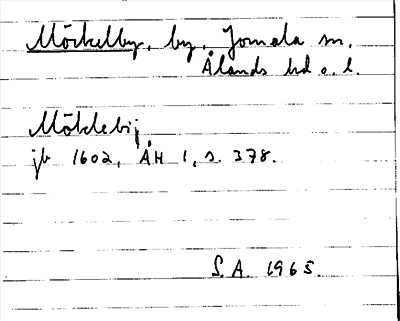 Möckelby, by, Jomala sn,
Ålands hd o. l.
Mökleby
jb 1602, ÅH 1, s. 378.
S.A. 1965.